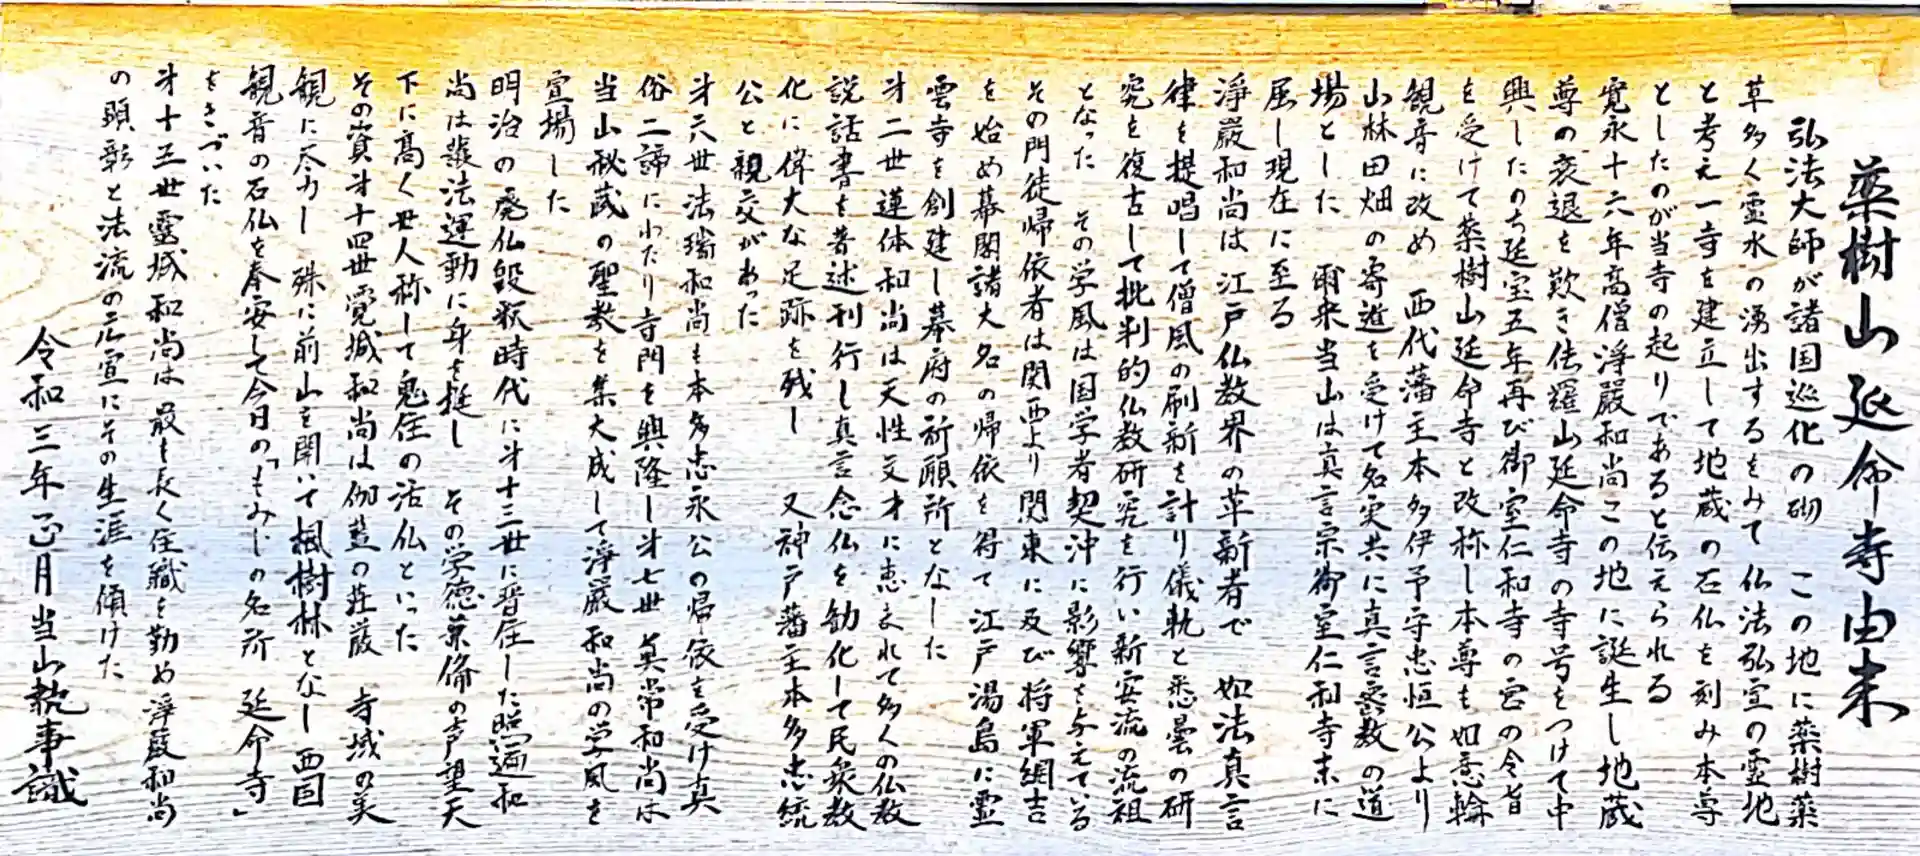 薬樹山延命寺由来
弘法大師が諸国巡化の砌 この地に薬樹薬
草多く霊水の湧出するをみて仏法弘宣の霊地
と考え一寺を建立して地蔵の石仏を刻み本尊
としたのが当寺の起りであると伝えられる
寛永十六年高僧浄嚴和尚この地に誕生し地蔵
尊の衰退を歎き佉羅山延命寺の寺号をつけて中
興したのち延宝五年再び御室仁和寺の宮の令旨
を受けて薬樹山延命寺と改称し本尊も如意輪
観音に改め 西代藩主本多伊予守忠恒公より
山林田畑の寄進を受けて名実共に真言密教の道
場とした 爾来当山は真言宗御室仁和寺末に
屈し現在に至る
浄嚴和尚は江戸仏教界の革新者で 如法真言
律を提唱して僧風の刷新を計り儀軌と悉曇の研
究を復古して批判的仏教研究を行い新安流の流祖
となった その学風は国学者契沖に影響を与えている
その門徒帰依者は関西より関東に及び将軍綱吉
を始め幕閣諸大名の帰依を得て江戸湯島に霊
雲寺を創建し幕府の祈願所となした
才二世蓮体和尚は天性文才に恵まれて多くの仏教
説話書を著述刊行し真言念仏を勧化して民衆教
化に偉大な足跡を残し 又神戸藩主本多忠統
公と親交があった
才六世法瑞和尚も本多忠永公の帰依を受け真
俗二諦にわたり寺門を興隆し才七世 真常和尚は
当山秘蔵の聖教を集大成して浄嚴和尚の学風を
宣場した
明治の廃仏毀釈時代に才十三世に晋住した照遍和
尚は護法運動に身を挺し その学徳兼備の声望天
下に高く世人称して鬼住の活仏といった
その資才十四世覺城和尚は伽藍の荘厳 寺域の美
観に尽力し 殊に前山を開いて楓樹林となし 西国
観音の石仏を奉安して今日の「もみじの名所 延命寺」
をきづいた
才十五世靈城和尚は最も長く住職を勤め浄嚴和尚
の顕彰と法流の広宣にその生涯を傾けた
令和三年正月当山執事識